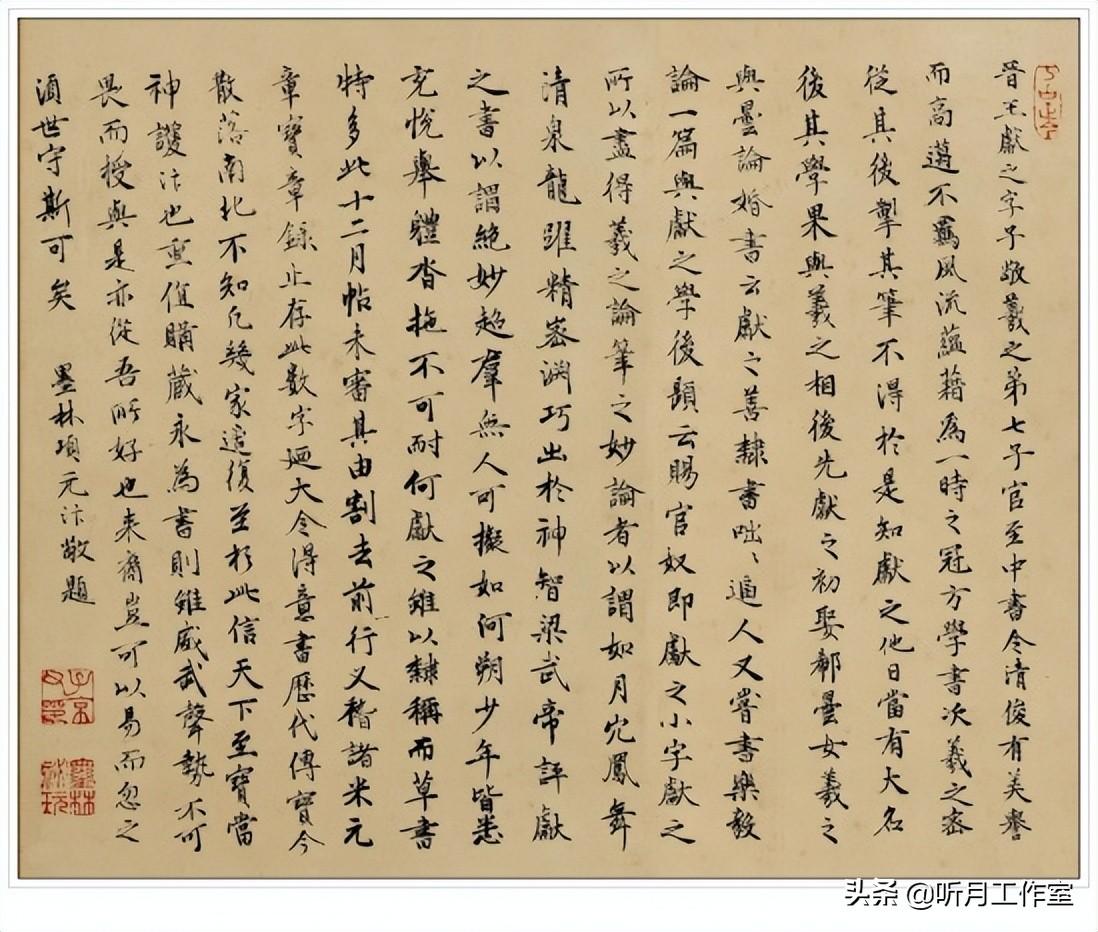 晉王獻之字子敬羲之第七子官至中書令清俊有美譽
而高邁不羈風流蘊藉為一時之冠方學書次羲之密
從其後掣其筆不得於是知獻之他日當有大名
後其學果與羲之相後先獻之初娶郗曇女羲之
與曇論婚書云獻之善隸書咄咄逼人又嘗書樂毅
論一篇與獻之學後題云賜官奴即獻之小字獻之
所以盡得羲之論筆之妙論者以謂如月穴鳳舞
清泉龍躍精密淵巧出於神智梁武帝評獻
之書以謂絕妙超羣無人可擬如何朔少年皆悉
充悅舉體沓拖不可耐何獻之雖以隸稱而草書
特多此十二月帖未審其由割去前行又稽諸米元
章寶章錄止存此數字迺大令得意書歷代傳寶今
散落南北不知凡幾家適復至於此信天下至寶當
神護汴也重值購藏永為書則雖威武聲勢不可
畏而授與是亦從吾所好也来裔豈可以易而忽之
須世守斯可矣 墨林項元汴敬題
子京父印
墨林
头条 @听月工作室